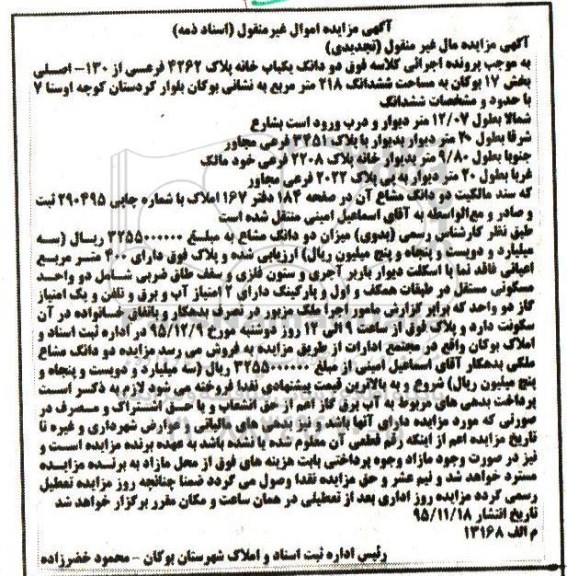 آگهی مزایده اموال غیرمنقول (اسناد ذمه)
آگهی مزایده مال غیر منقول (تجدیدی)
به موجب پرونده اجرائی کلاسه فوق دو دانگ یکباب خانه پلاک ۴۲۶۲ فرعی از ۱۳۰- اصلی
بخش ۱۷ بوکان به مساحت ششدانگ ۲۱۸ متر مربع به نشانی بوکان بلوار کردستان کوچه اوستا ۷
با حدود و مشخصات ششدانگ
شمالا بطول ۱۲/۰۷ متر دیوار و درب ورود است بشارع
شرقا بطول ۲۰ متر دیوار بدیوار با پلاک ۳۴۵۱ فرعی مجاور
جنوبا بطول ۹/۸۰ متر بدیوار خانه پلاک ۲۲۰۸ فرعی خود مالک
غربا بطول ۲۰ متر دیوار به پی پلاک ۲۰۲۲ فرعی مجاور
که سند مالکیت دو دانگ مشاع آن در صفحه ۱۸۴ دفتر ۱۶۷ املاک با شماره چاپی ۲۹۰۴۹۵ ثبت
و صادر و مع الواسطه به آقای اسماعیل امینی منتقل شده است
طبق نظر کارشناس رسمی (بدوی) میزان دو دانگ مشاع به مبلغ ۳۲۵۵۰۰۰۰۰۰ ریال (سه
میلیارد و دویست و پنجاه و پنج میلیون ریال) ارزیابی شده و پلاک فوق دارای ۴۰۰ متر مربع
اعیانی فاقد نما با اسکلت دیوار باربر آجری و ستون فلزی و سقف طاق ضربی شامل دو واحد
مسکونی مستقل در طبقات همکف و اول و پارکینگ دارای ۲ امتیاز آب و برق و تلفن و یک امتیاز
گاز دو واحد که برابر گزارش مامور اجرا ملک مزبور در تصرف بدهکار و باتفاق خانواده در آن
سکونت دارد و پلاک فوق از ساعت ۹ الی ۱۲ روز دوشنبه مورخ ۹۵/۱۲/۹ در اداره ثبت اسناد و
املاک بوکان واقع در مجتمع ادارات از طریق مزایده به فروش می رسد مزایده دو دانگ مشاع
ملکی بدهکار آقای اسماعیل امینی از مبلغ ۳۲۵۵۰۰۰۰۰۰ ریال (سه میلیارد و دویست و پنجاه و
پنج میلیون ریال) شروع و به بالاترین قیمت پیشنهادی نقدا فروخته می شود لازم به ذکر است
پرداخت بدهی های مربوط به آب برق گاز اعم از حق انشعاب و یا حق اشتراک و مصرف در
صورتی که مورد مزایده دارای آنها باشد و نیز بدهی های مالیاتی و عوارض شهرداری و غیره تا
تاریخ مزایده اعم از اینکه رقم قطعی آن معلوم شده یا نشده باشد به عهده برنده مزایده است و
نیز در صورت وجود مازاد وجوه پرداختی بابت هزینه های فوق از محل مازاد به برنده مزایده
مسترد خواهد شد و نیم عشر و حق مزایده نقدا وصول می گردد ضمنا چنانچه روز مزایده تعطیل
رسمی گردد مزایده روز اداری بعد از تعطیلی در همان ساعت و مکان مقرر برگزار خواهد شد
تاریخ انتشار ۹۵/۱۱/۱۸
م الف ۱۳۱۶۸
رئیس اداره ثبت اسناد و املاک شهرستان بوکان - محمود خضرزاده